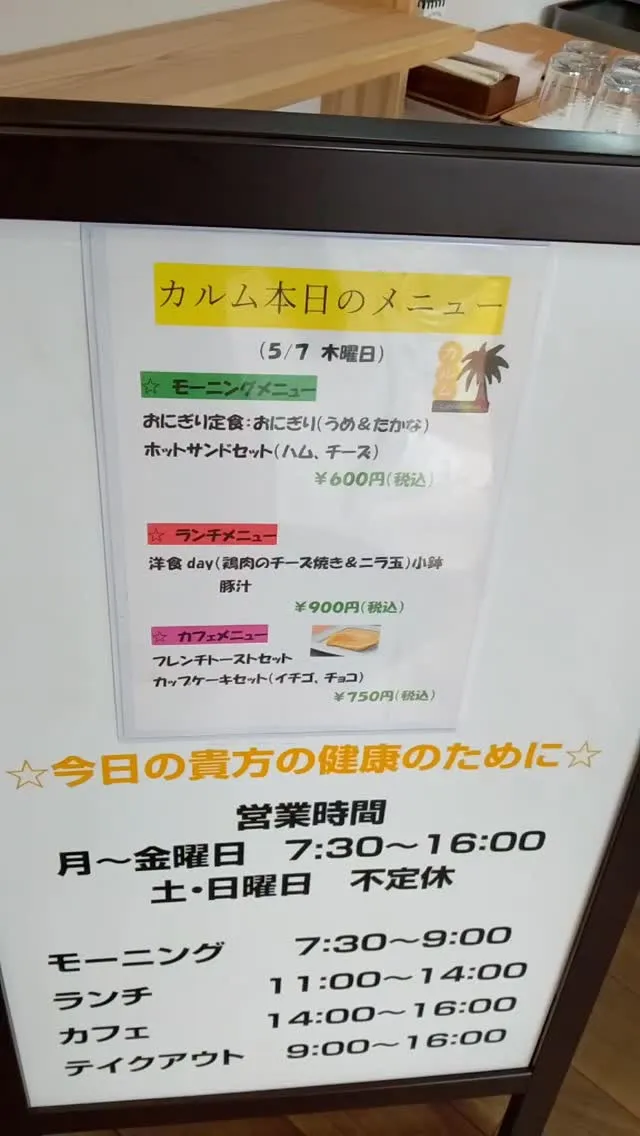 カルム本日のメニュー
(5/7 木曜日)
☆ モーニングメニュー
おにぎり定食:おにぎり(うめ&たかな)
ホットサンドセット(ハム、チーズ)
¥600円(税込)
☆ ランチメニュー
洋食day(鶏肉のチーズ焼き&ニラ玉)小鉢
豚汁
¥900円(税込)
☆ カフェメニュー
フレンチトーストセット
カップケーキセット(イチゴ、チョコ)
¥750円(税込)
☆今日の貴方の健康のために☆
営業時間
月~金曜日 7:30~16:00
土・日曜日 不定休
モーニング 7:30~9:00
ランチ 11:00~14:00
カフェ 14:00~16:00
テイクアウト 9:00~16:00